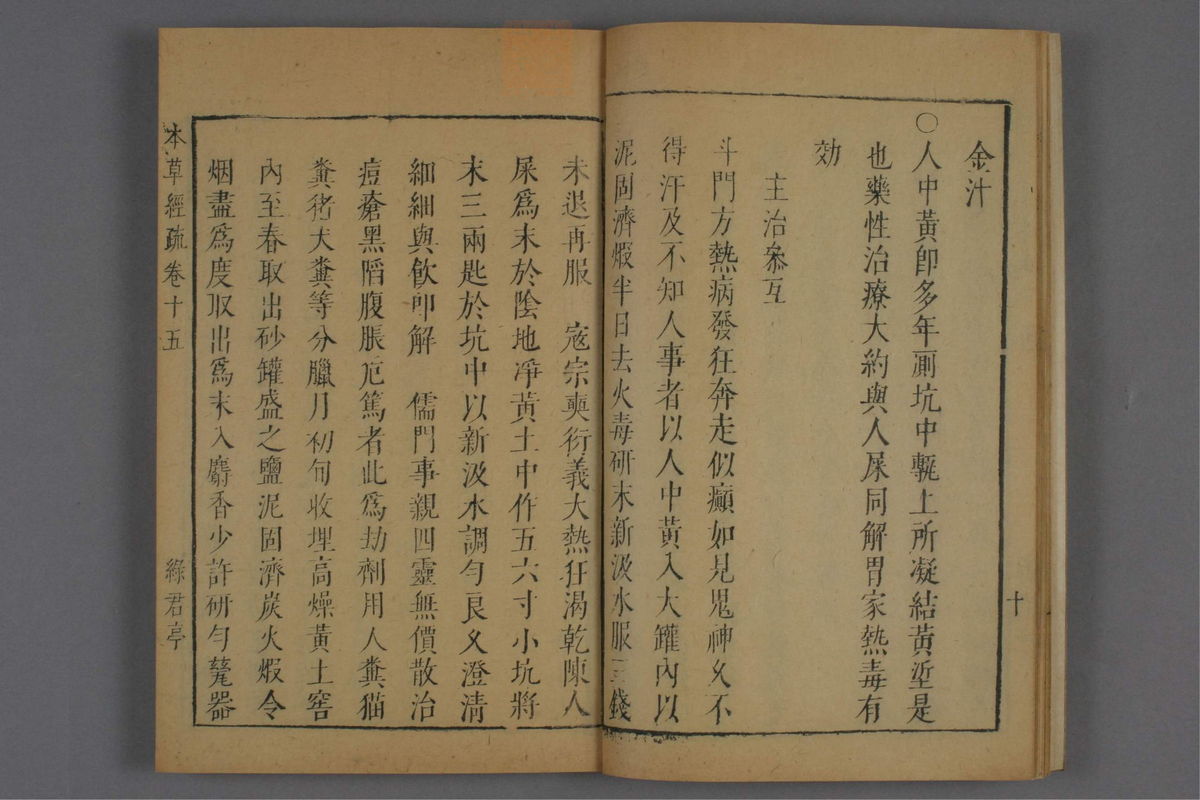 十
金汁
○人中黃卽多年厠坑中甎上所凝結黃垽是
也藥性治療大約與人屎同解胃家熱毒有
効
主治叅互
斗門方熱病發狂奔走似癲如見鬼神久不
得汗及不知人事者以人中黃入大罐內以
泥固濟煆半日去火毒硏末新汲水服三錢
未退再服　寇宗奭衍義大熱狂渴乾陳人
屎爲末於陰地凈黃土中作五六寸小坑將
末三兩匙於坑中以新汲水調勻良久澄淸
細細與飮卽解　儒門事親四靈無價散治
痘瘡黑陷腹脹危篤者此爲劫劑用人糞猫
糞猪犬糞等分臘月初旬收埋高燥黃土窖
內至春取出砂罐盛之鹽泥固濟炭火煆令
烟盡爲度取出爲末入麝香少許硏勻甆器
本草經疏卷十五
綠君亭